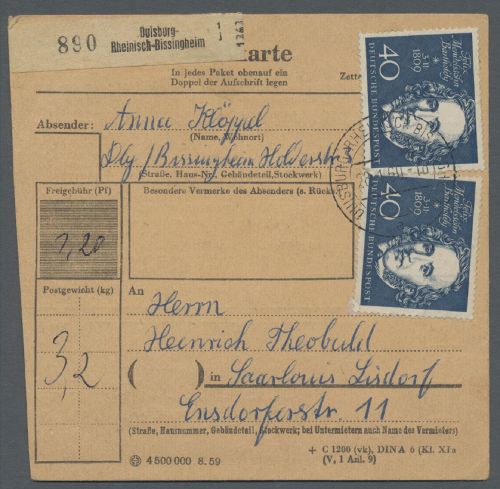 890
Duisburg-
Rheinisch-Bissingheim
karte
In jedes Paket obenauf ein
Doppel der Aufschrift legen
Zette
Absender: Anna Klöppel
(Name, Wohnort)
Dbg / Bissingheim Holderstr
(Straße, Haus-Nr., Gebäudeteil, Stockwerk)
Freigebühr (Pf)
Besondere Vermerke des Absenders (s. Rücks
1,20
Postgewicht (kg)
3,2
An
Herrn
Heinrich Theobald
( ) in Saarlouis Lisdorf
Ensdorferstr. 11
(Straße, Hausnummer, Gebäudeteil, Stockwerk; bei Untermietern auch Name des Vermieters)
4 500 000 8. 59
+ C 1200 (vk), DIN A 6 (Kl. XIa
(V, 1 Anl. 9)
40
DEUTSCHE BUNDESPOST
Felix
Mendelssohn
Bartholdy
*
3·II
1809
40
DEUTSCHE BUNDESPOST
Felix
Mendelssohn
Bartholdy
*
3·II
1809